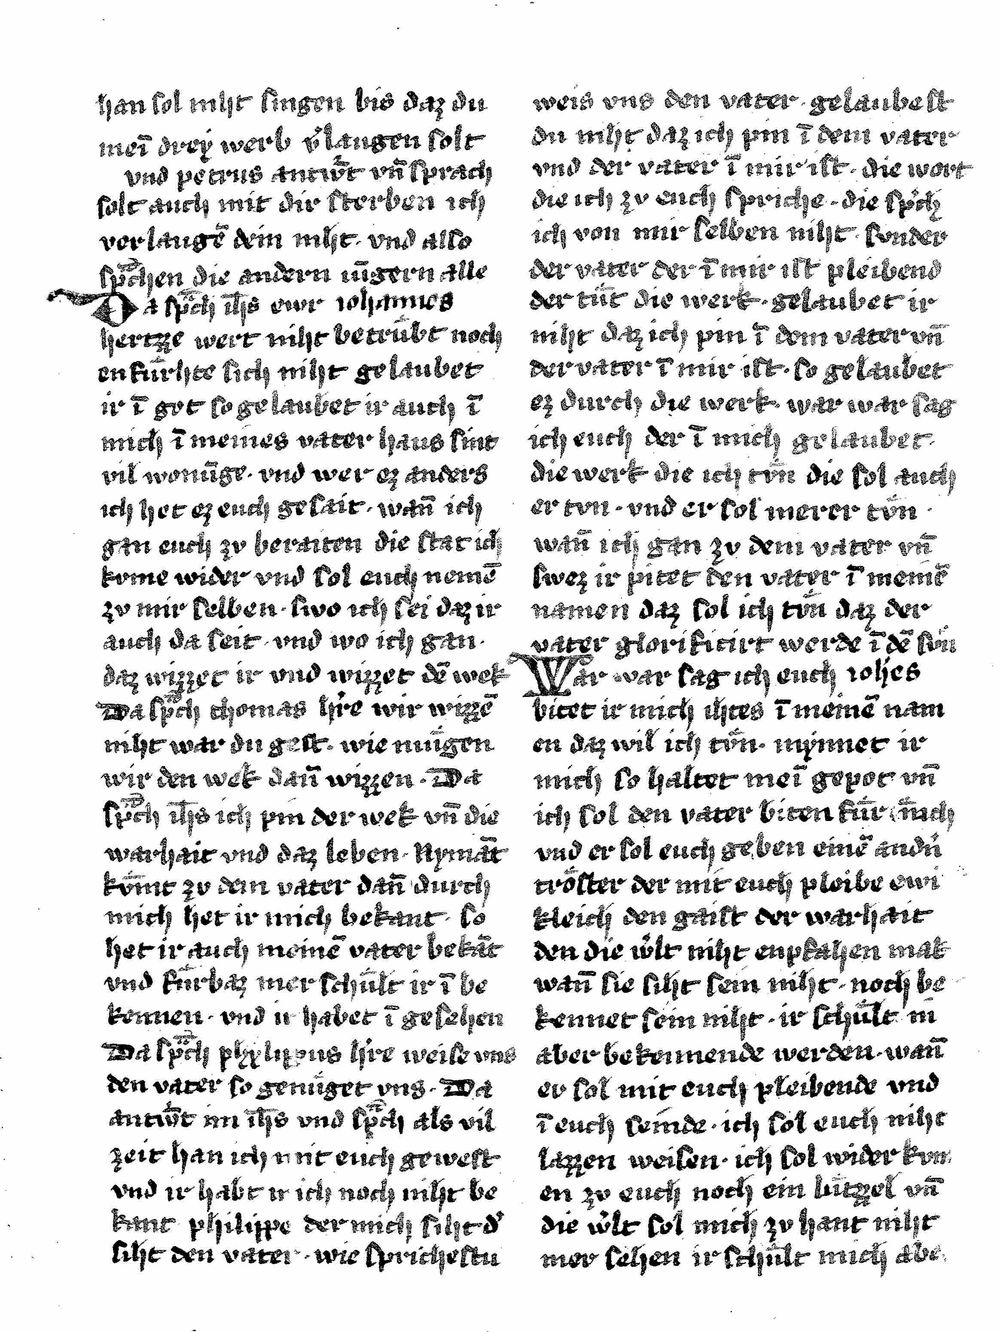 han sol niht singen bis daz du
meī dreẏ werb v͛laugen solt
vnd petrus antw̄t vn̄ sprach
solt auch mit dir sterben ich
verlaugē dein niht · vnd also
sp̄chen die andern iūgern alle
Da sp̄ch ih̄s ewr iohannes
hertzze wert niht betrůbt noch
enfůrhte sich niht gelaubet
ir ī got so gelaubet ir auch ī
mich ī meines vater haus sint
vil wonūge · vnd wer ez anders
ich het ez euch gesait · wan̄ ich
gan euch zv beraiten die stat ich
kvme wider vnd sol euch nemē
zv mir selben · swo ich sei daz ir
auch da seit · vnd wo ich gan ·
daz wizzet ir vnd wizzet dē wek
Da sp̄ch thomas h͛re wir wizzē
niht war du gest · wie mu̇gen
wir den wek dan̄ wizzen · Da
sp̄ch ih̄s ich pin der wek vn̄ die
warhait vnd daz leben · Nymāt
kv̊mt zv dem vater dan̄ durch
mich het ir mich bekant · so
het ir auch meinē vater bekāt
vnd fůrbaz mer schůlt ir ī be
kennen · vnd ir habet ī gesehen
Da sp̄ch phẏlippus h͛re weise vns
den vater so genůget vns · Da
antw̄t im ih̄s vnd sp̄ch als vil
zeit han ich mit euch gewest
vnd ir habt ir ich noch niht be
kant philippe der mich siht d͛
siht den vater · wie sprichestu
weis vns den vater · gelaubest
du niht daz ich pin ī dem vater
vnd der vater ī mir ist · die wort
die ich zv euch spriche · die sp̄ch
ich von mir selben niht · sunder
der vater der ī mir ist pleibend
der tůt die werk · gelaubet ir
niht daz ich pin ī dem vater vn̄
der vater ī mir ist · so gelaubet
ez durch die werk · war war sag
ich euch der ī mich gelaubet ·
die werk die ich tv̊n die sol auch
er tvn · vnd er sol merer tv̊n ·
wan̄ ich gan zv dem vater vn̄
swez ir pitet den vater ī meinē
namen daz sol ich tv̊n daz der
vater glorificirt werde ī dē sůn
War war sag ich euch ioh̄es
bitet ir mich ihtes ī meinē nam
en daz wil ich tv̊n · mẏnnet ir
mich so haltet meī gepot vn̄
ich sol den vater biten fůr mich
vnd er sol euch geben einē and͛n
trôster der mit euch pleibe ewi
kleich den gaist der warhait
den die w͛lt niht enpfahen mak
wan̄ sie siht sein niht · noch be
kennet sein niht · ir schůlt in
aber bekennende werden · wan̄
er sol mit euch pleibende vnd
ī euch seinde · ich sol euch niht
lazzen weisen · ich sol wider kvm
en zv euch noch ein lützzel vn̄
die w͛lt sol mich zv hant niht
mer sehen ir schůlt mich abe